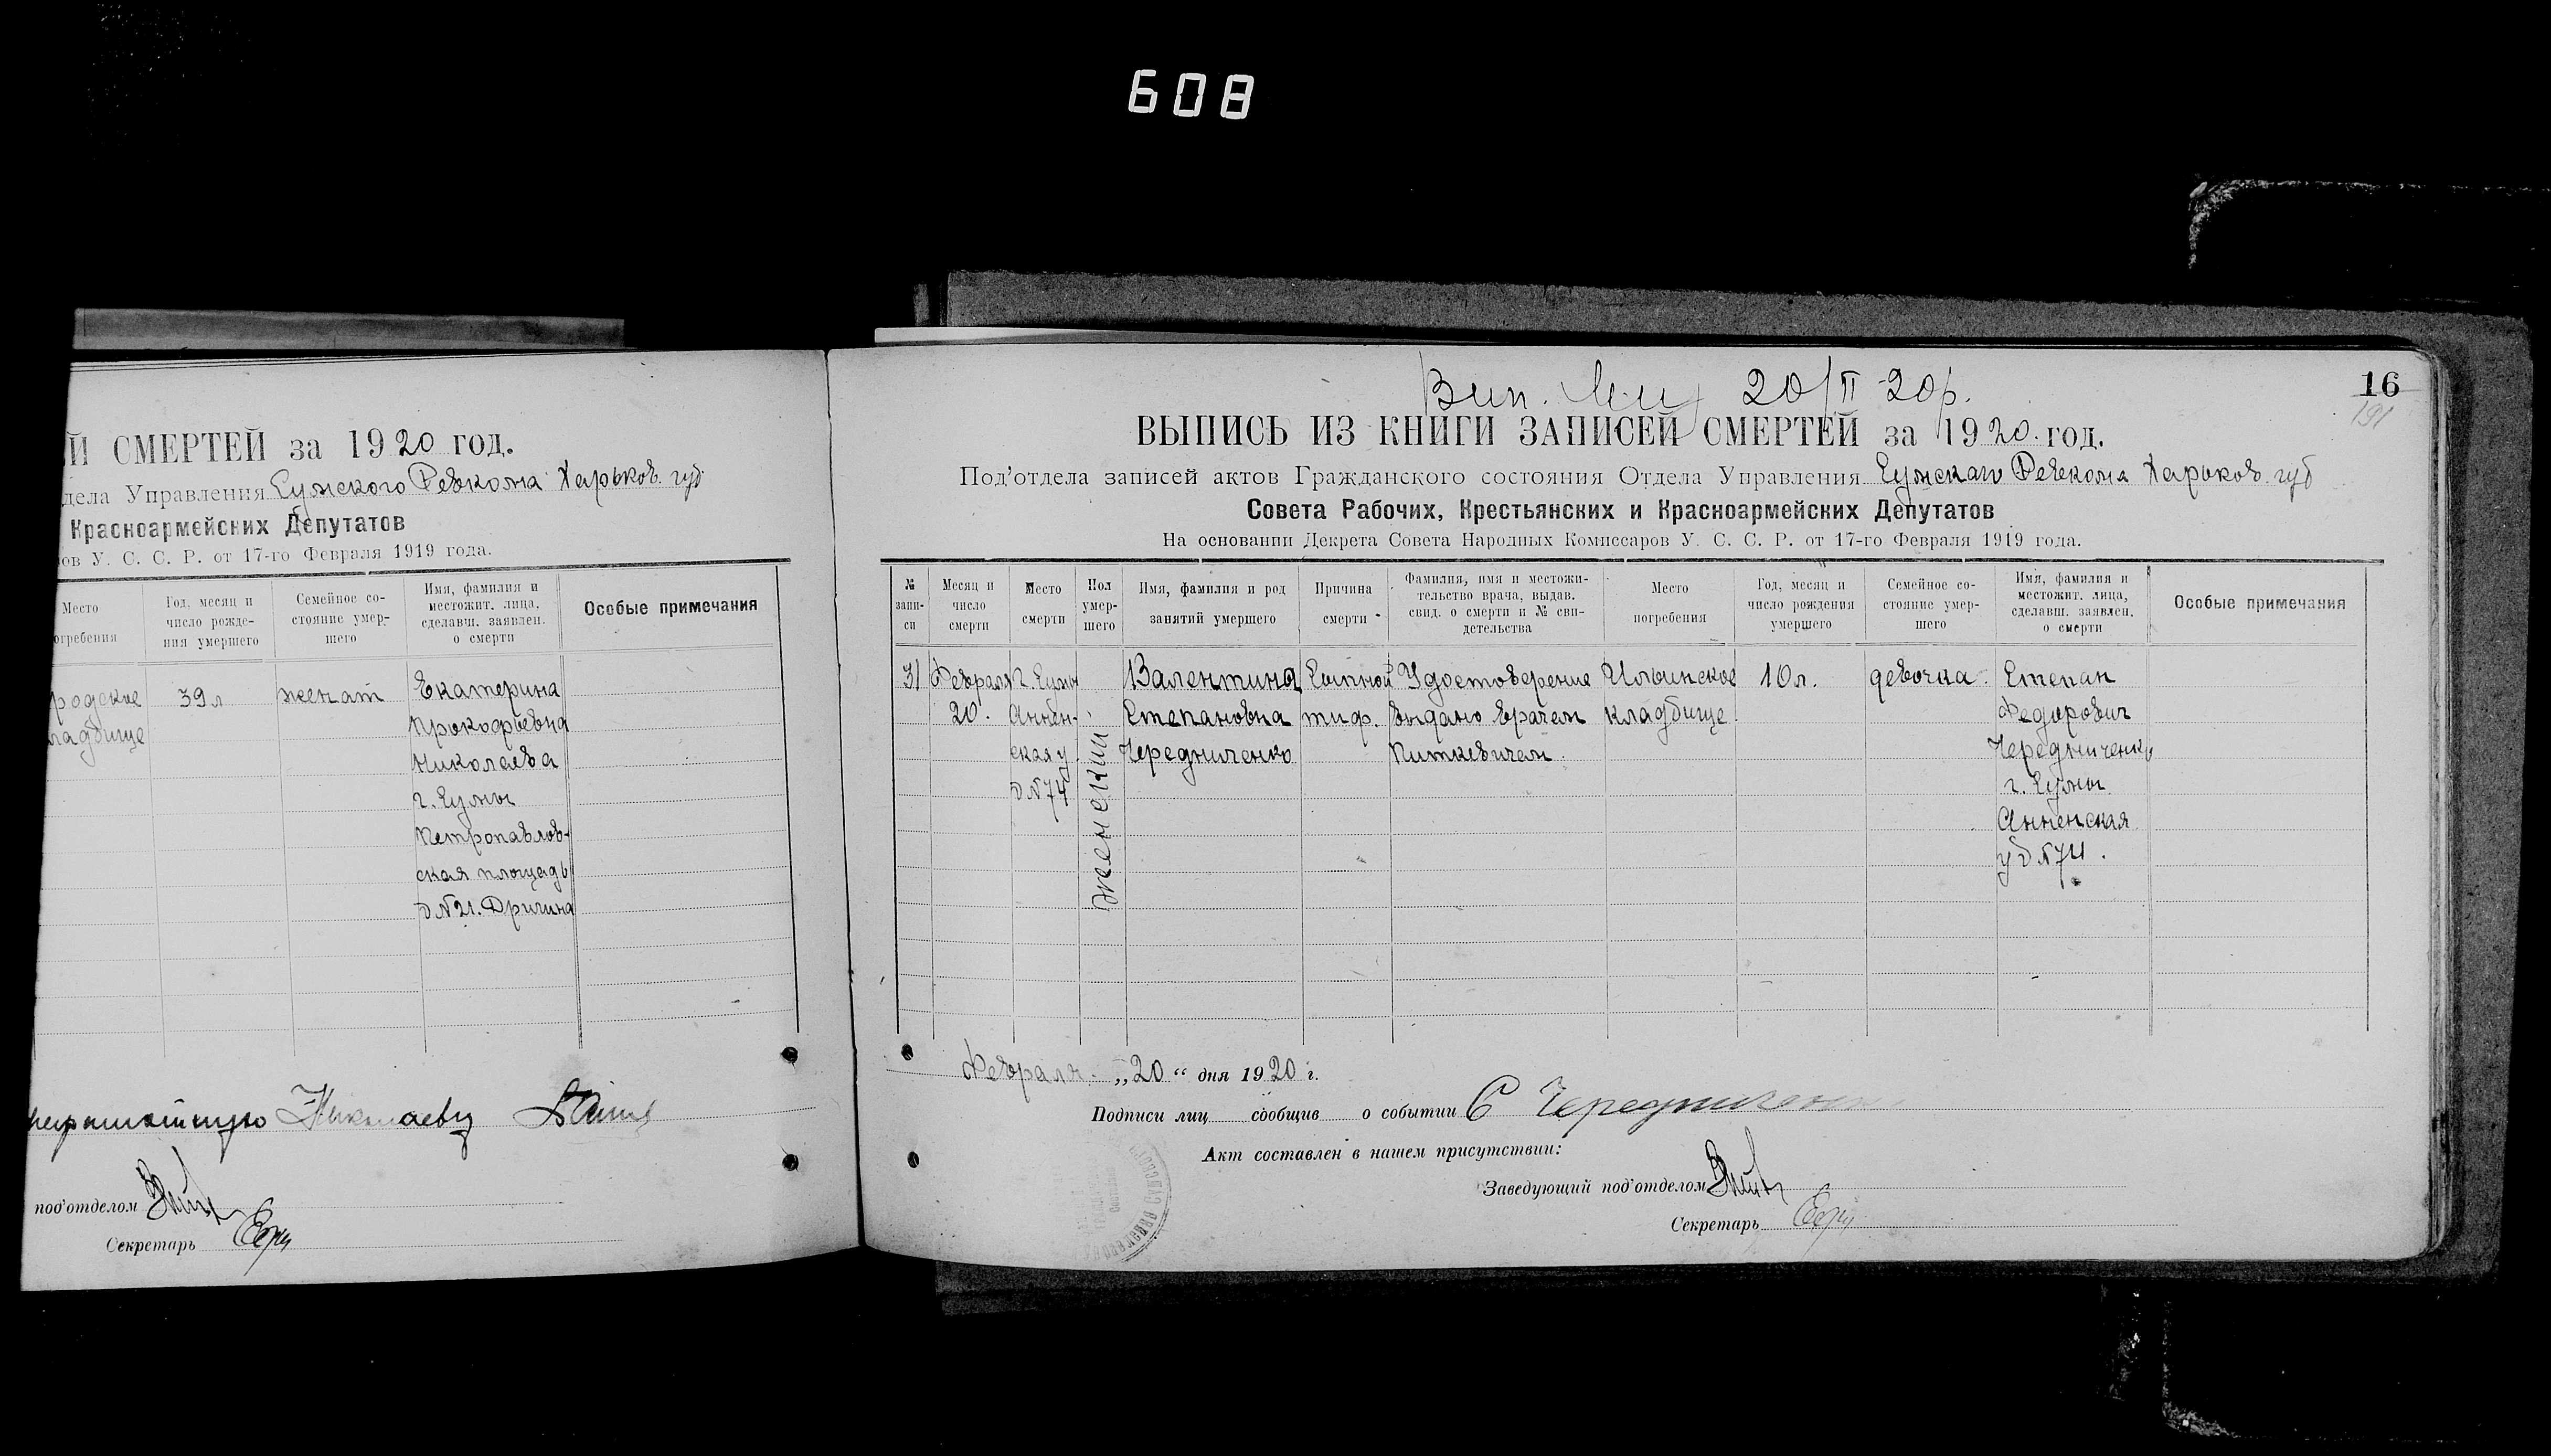 608
Й СМЕРТЕЙ за 1920 год.
дела Управления Сумского Ревкома Харьков. губ
Красноармейских Депутатов
ов У. С. С. Р. от 17-го Февраля 1919 года.
Место
огребения
Год, месяц и
число рожде-
ния умершего
Семейное со-
стояние умер-
шего
Имя, фамилия и
местожит. лица,
сделавш. заявлен.
о смерти
Особые примечания
родские
ладбище
39 л
женат
Екатерина
Прокофьевна
Николаева
г. Сумы
Петропавлов-
ская площадь
д №21.
Николаеву
под'отделом
Секретарь
20/II 20р.
16
191
ВЫПИСЬ ИЗ КНИГИ ЗАПИСЕЙ СМЕРТЕЙ за 1920. год.
Под'отдела записей актов Гражданского состояния Отдела Управления Сумскаго Ревкома Харьков. губ
Совета Рабочих, Крестьянских и Красноармейских Депутатов
На основании Декрета Совета Народных Комиссаров У. С. С. Р. от 17-го Февраля 1919 года.
№
запи-
си
Месяц и
число
смерти
Место
смерти
Пол
умер-
шего
Имя, фамилия и род
занятий умершего
Причина
смерти
Фамилия, имя и местожи-
тельство врача, выдав.
свид. о смерти и № сви-
детельства
Место
погребения
Год, месяц и
число рождения
умершего
Семейное со-
стояние умер-
шего
Имя, фамилия и
местожит. лица,
сделавш. заявлен.
о смерти
Особые примечания
31
Февраля
20.
г. Сумы
Аннен-
ская у
д №74
женский
Валентина
Степановна
Чередниченко
Сыпной
тиф.
Удостоверение
выдано врачем
Питкевичем.
Ильинское
кладбище.
10 л.
девочка.
Степан
Федорович
Чередниченко
г. Сумы
Анненская
у д №74.
Февраля „20“ дня 1920 г.
Подписи лиц сообщив о событии С Чередниченко
Акт составлен в нашем присутствии:
Заведующий под'отделом
Секретарь